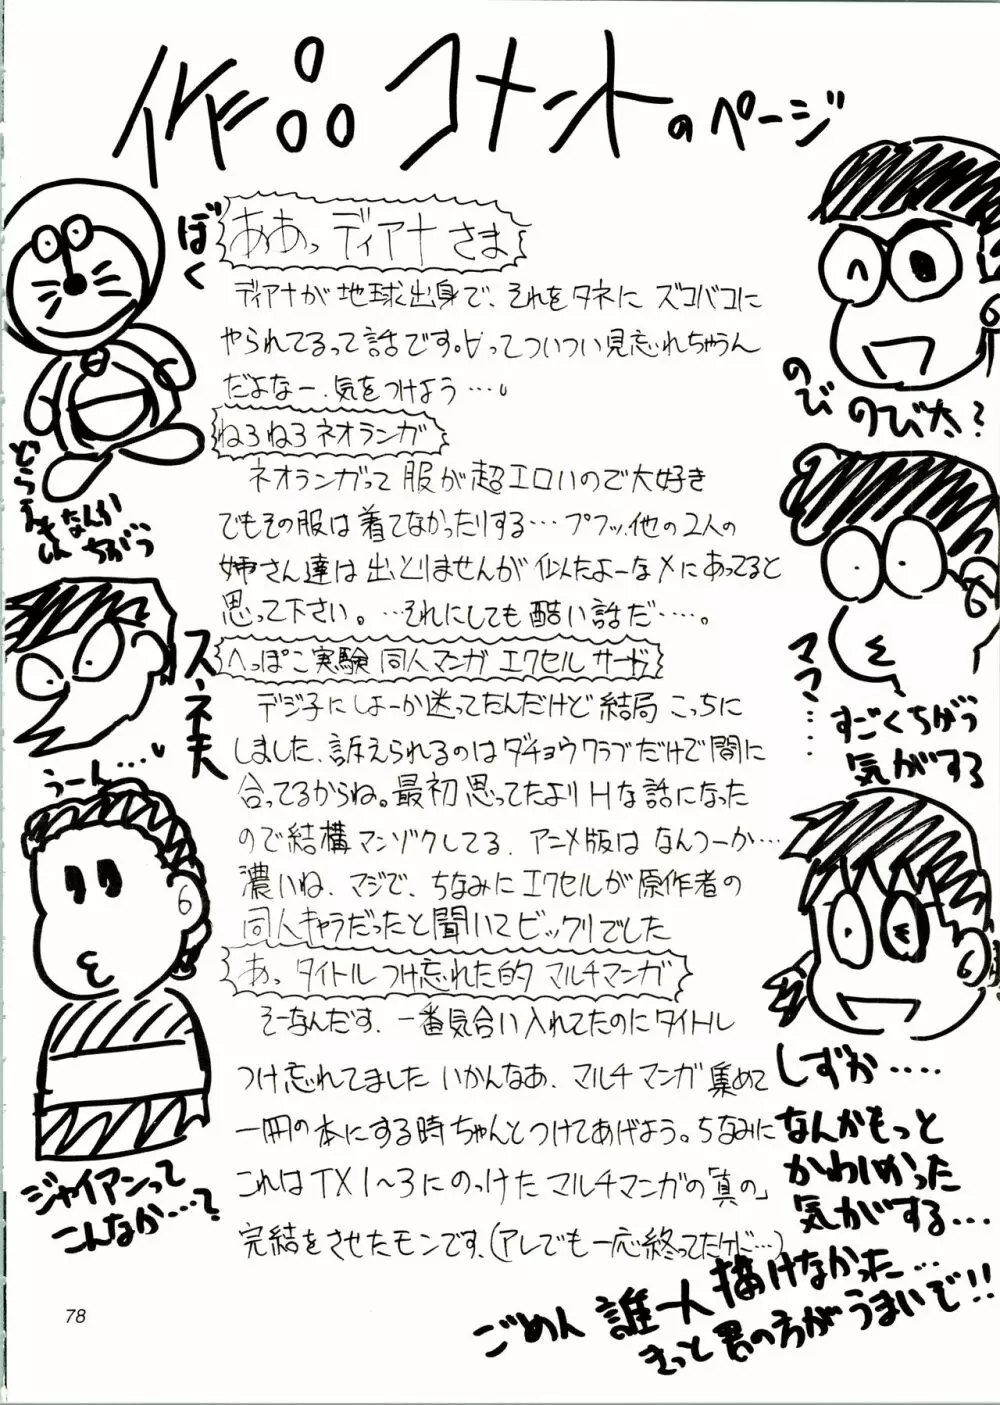 作品コメントのページ
ああっディアナさま
ディアナが地球出身で、それをタネにズコバコに
やられてるって話です。∀ってついつい見忘れちゃうん
だよなー、気をつけよう…。
ねろねろネオランガ
ネオランガって服が超エロいので大好き
でもその服は着てなかったりする…プフッ、他の2人の
姉さん達は出とりませんが似たよーなメにあってると
思って下さい。…それにしても酷い話だ……。
へっぽこ実験同人マンガエクセルサード
デジ子にしよーか迷ってたんだけど結局こっちに
しました、訴えられるのはダチョウクラブだけで間に
合ってるからね。最初思ってたよりHな話になった
ので結構マンゾクしてる、アニメ版はなんつーか…
濃いね、マジで、ちなみにエクセルが原作者の
同人キャラだったと聞いてビックリでした
あっタイトルつけ忘れた的マルチマンガ
そーなんだす、一番気合い入れてたのにタイトル
つけ忘れてましたいかんなあ、マルチマンガ集めて
一冊の本にする時ちゃんとつけてあげよう。ちなみに
これはTX1〜3にのっけたマルチマンガの「真の」
完結をさせたモンです、(アレでも一応終ってたケド…)
ぼく
どらえもん
なんか
ちがう
スネ夫
うーん…
ジャイアンって
こんなか…?
のび
のび太?
ママ…
すごくちがう
気がする
しずか……
なんかもっと
かわいかった
気がする…
ごめん誰一人描けなかった…
きっと君の方がうまいで!!
78